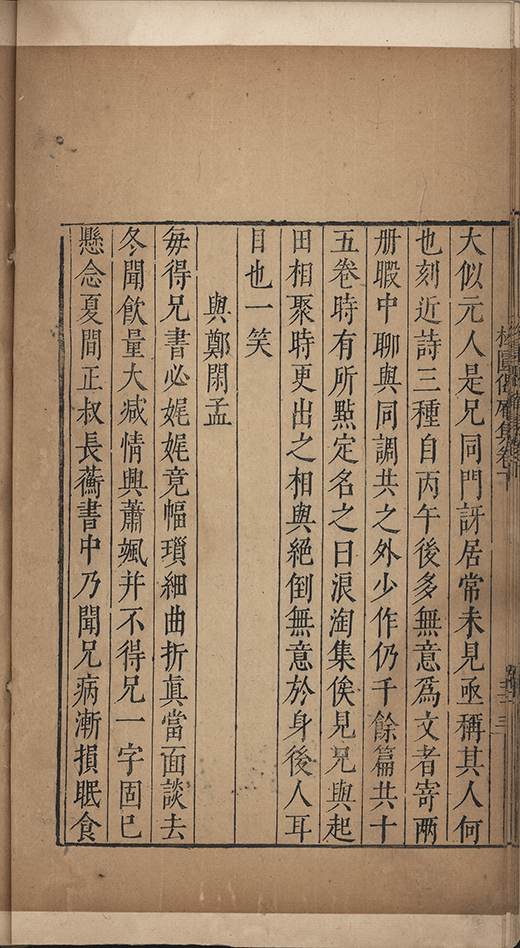 大似元人是兄同門訝居常未見亟稱其人何
也刻近詩三種自丙午後多無意爲文者寄兩
册暇中聊與同調共之外少作仍千餘篇共十
五卷時有所點定名之曰浪淘集俟見兄與起
田相聚時更出之相與絕倒無意於身後人耳
目也一笑
與鄭閑孟
每得兄書必娓娓竟幅瑣細曲折眞當面談去
冬聞飲量大减情興蕭颯幷不得兄一字固已
懸念夏間正叔長蘅書中乃聞兄病漸損眠食